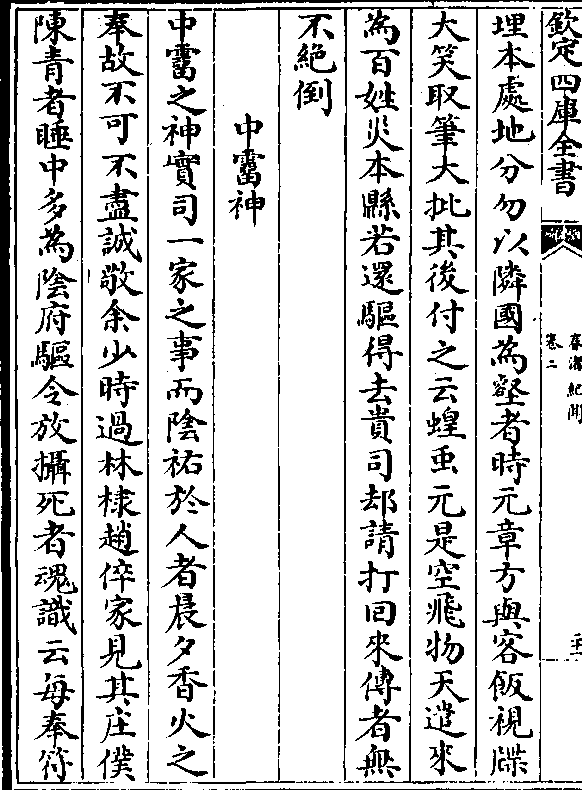 欽定四庫全書
春渚紀聞
卷二
埋本處地分勿以隣國為壑者時元章方與客飯視牒
大笑取筆大批其後付之云蝗䖝元是空飛物天遣來
為百姓災本縣若還驅得去貴司却請打回來傳者無
不絕倒
中霤神
中霤之神實司一家之事而陰祐於人者晨夕香火之
奉故不可不盡誠敬余少時過林棣趙倅家見其庄僕
陳青者睡中多為陰府驅令放攝死者魂識云每奉符